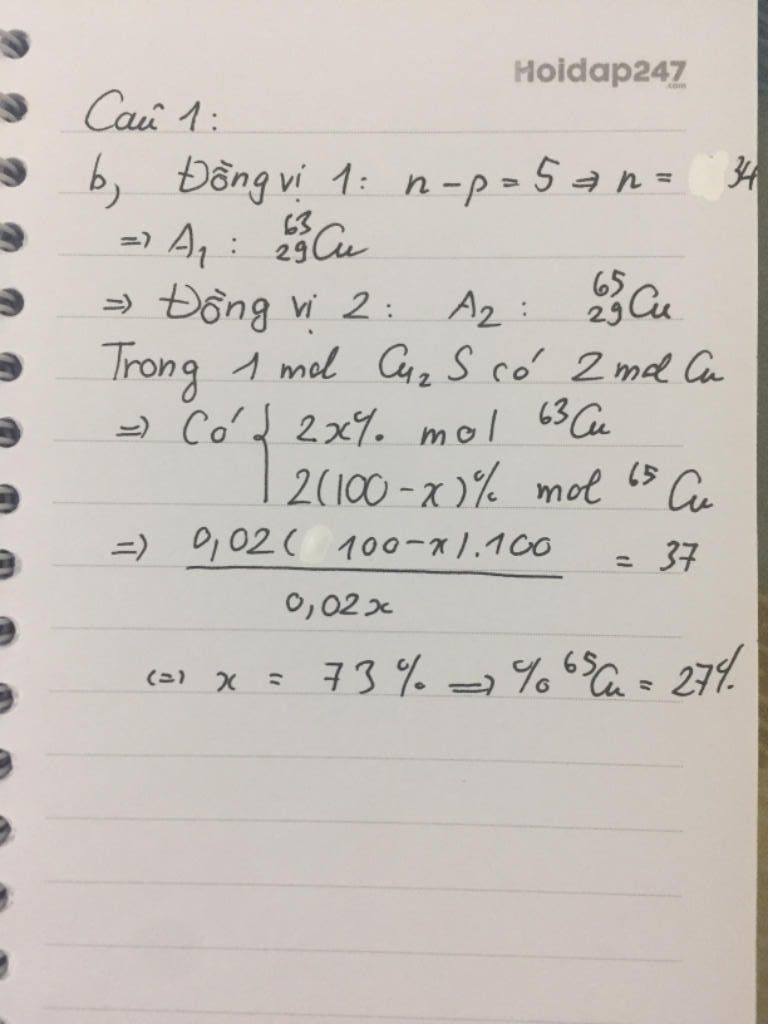 Hoidap247
.com
Câu 1:
b, Đồng vị 1: n - p = 5 => n = 34
=> A₁ : ⁶³₂₉Cu
=> Đồng vị 2 : A₂ : ⁶⁵₂₉Cu
Trong 1 mol Cu₂S có 2 mol Cu
=> Có { 2x% mol ⁶³Cu
2(100 - x)% mol ⁶⁵Cu
=> 0,02( 100 - x).100 = 37
0,02x
<=> x = 73% => % ⁶⁵Cu = 27%